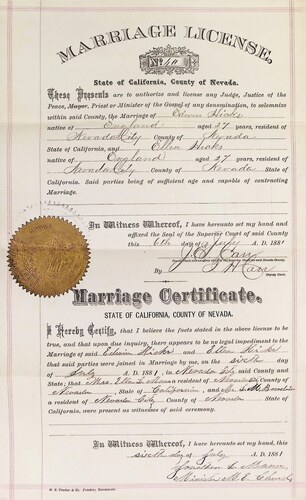 MARRIAGE LICENSE,
No 40
State of California, County of Nevada.
These Presents are to authorize and license any Judge, Justice of the
Peace, Mayor, Priest or Minister of the Gospel of any denomination, to solemnize
within said County, the Marriage of Edwin Hicks
native of England aged 27 years, resident of
Nevada City County of Nevada
State of California, and Ellen Hicks
native of England aged 27 years, resident of
Nevada City County of Nevada
State of California. Said parties being of sufficient age and capable of contracting
Marriage.
In Witness Whereof, I have hereunto set my hand and
affixed the Seal of the Superior Court of said County
this 6th day of July A.D. 1881
By
Deputy Clerk.
Marriage Certificate.
STATE OF CALIFORNIA, COUNTY OF NEVADA.
I Hereby Certify, that I believe the facts stated in the above license to be
true, and that upon due inquiry, there appears to be no legal impediment to the
Marriage of said Edwin Hicks and Ellen Hicks
that said parties were joined in Marriage by me, on the sixth
day of July A.D. 1881, in Nevada City said County and
State; that Mrs. Ellen L. a resident of Nevada County of
Nevada, State of California, and
a resident of Nevada City County of Nevada State of
California, were present as witnesses of said ceremony.
In Witness Whereof, I have hereunto set my hand, this
sixth day of July A.D. 1881
Jonathan L. Mann
Minister M. E. Church